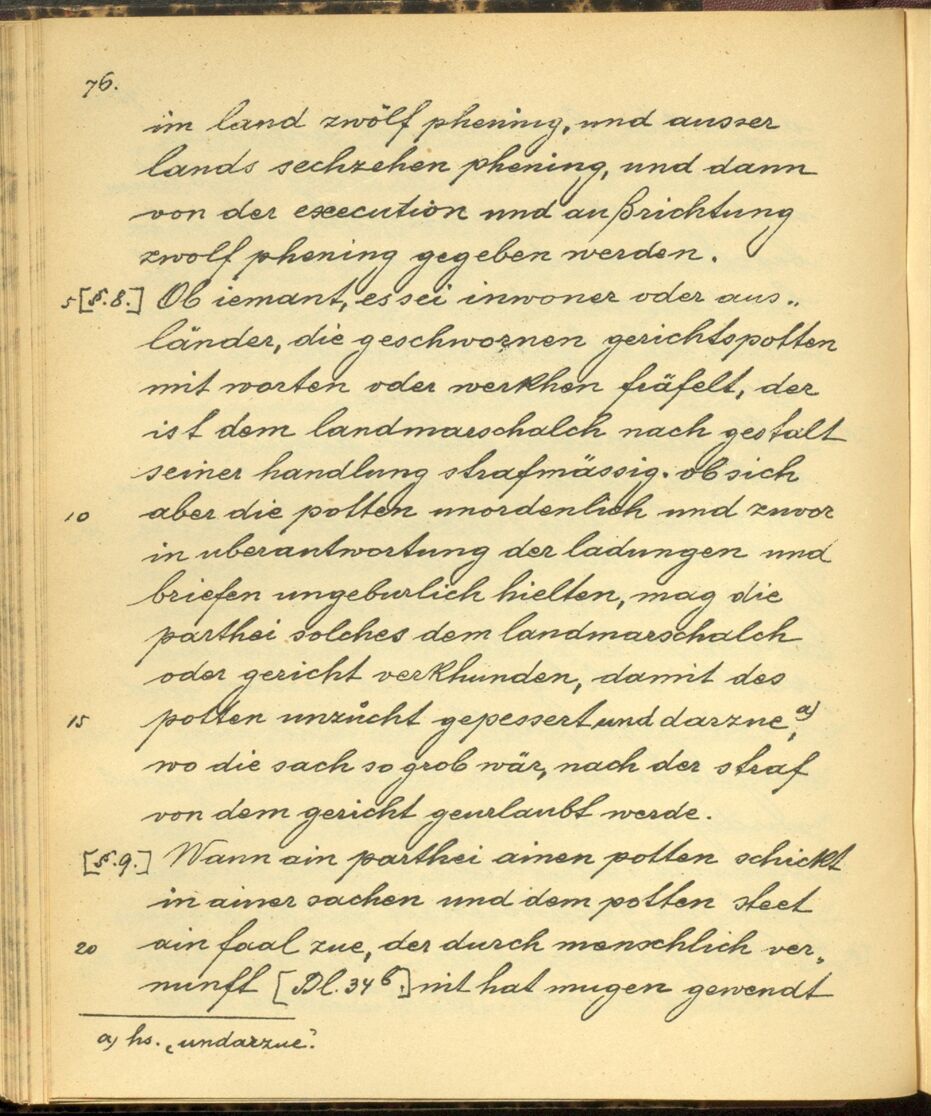 76.
im land zwölf phening, und ausser
lands sechzehen phening, und dann
von der execution und außrichtung
zwolf phening gegeben werden.
5 [§.8.] Ob iemant, es sei inwoner oder aus„
länder, die geschwornen gerichtspotten
mit worten oder werkhen fräfelt, der
ist dem landmarschalch nach gestalt
seiner handlung strafmässig. ob sich
10 aber die potten unordenlich und zuvor
in uberantwortung der ladungen und
briefen ungeburlich hielten, mag die
parthei solches dem landmarschalch
oder gericht verkhunden, damit des
15 potten unzůcht gepessert und darzue, a)
wo die sach so grob wär, nach der straf
von dem gericht geurlaubt werde.
[§.9.] Wann ain parthei ainen potten schickt
in ainer sachen und dem potten steet
20 ain faal zue, der durch menschlich ver„
nunft [Bl. 34 b.] nit hat mugen gewendt
a) hs. „undarzue“.